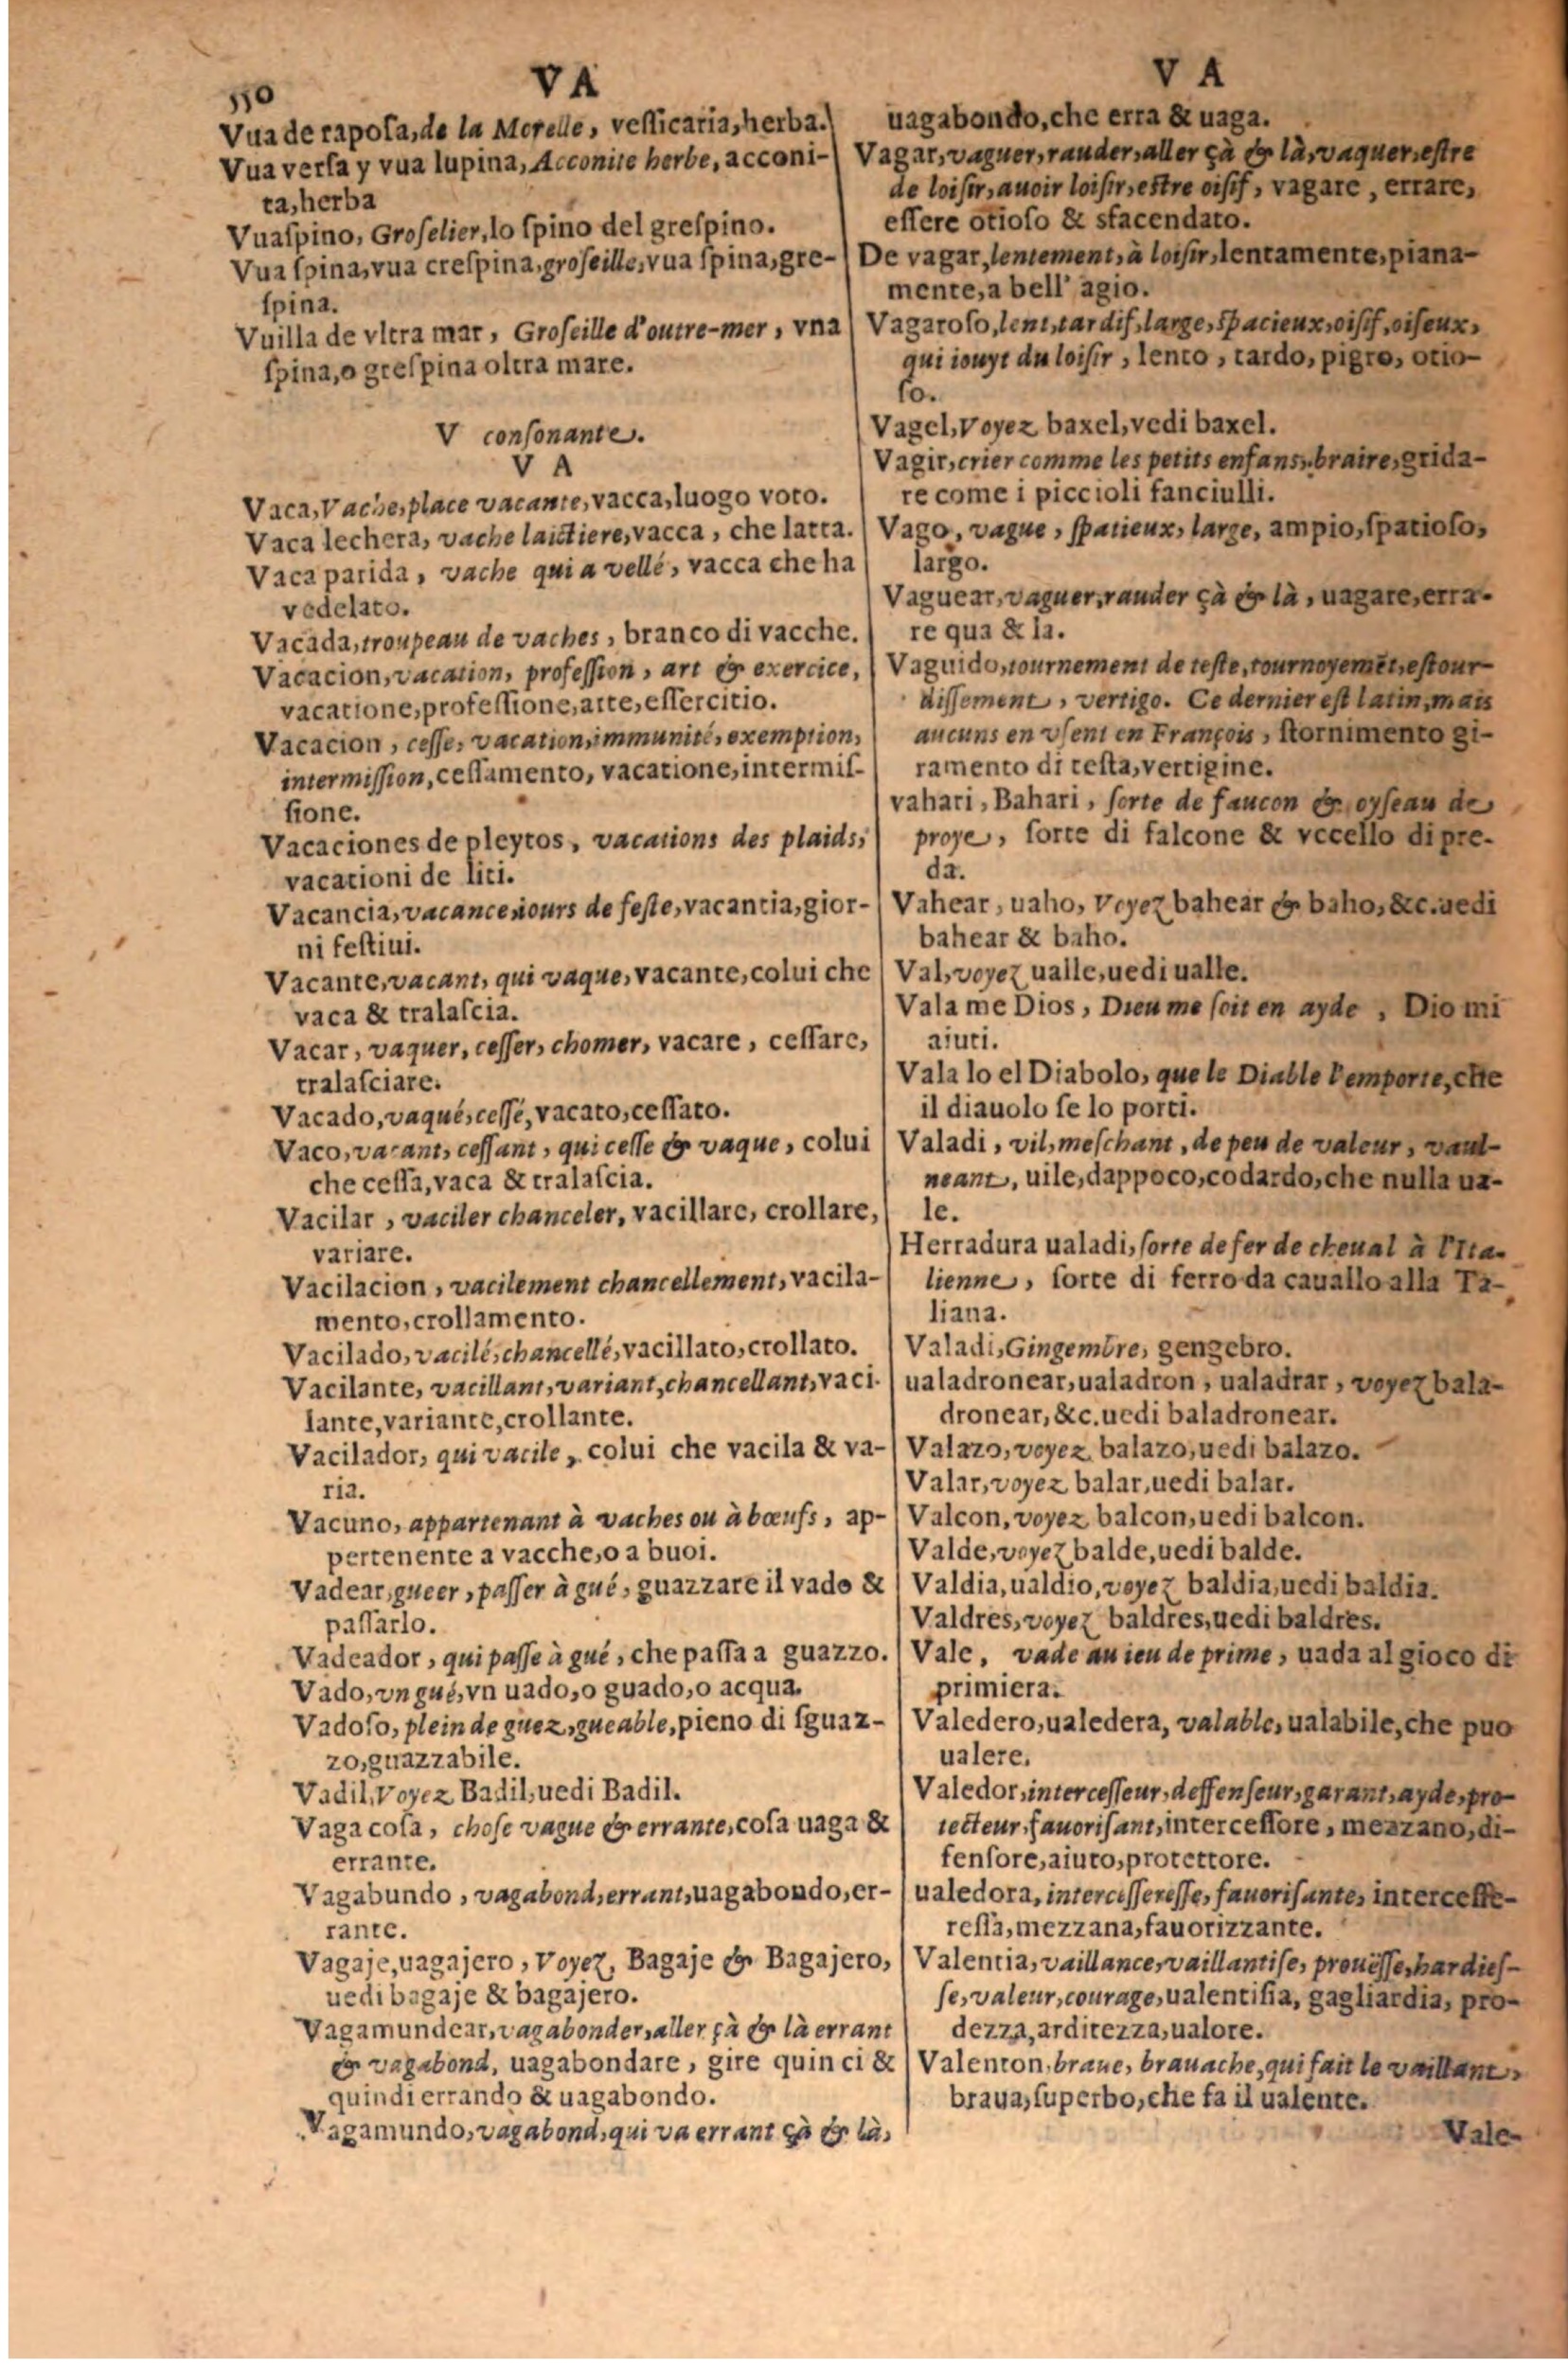 550
V A
Vua de raposa, de la Morelle, vessicaria, herba.
Vua versa y vua lupina, Acconite herbe, acconi-
ta, herba
Vuaspino, Groselier, lo spino del grespino.
Vua spina, vua crespina, groseille, vua spina, gre-
spina.
Vuilla de vltra mar, Groseille d'outre-mer, vna
spina, o grespina oltra mare.
V consonante.
V A
Vaca, Vache, place vacante, vacca, luogo voto.
Vaca lechera, vache laictiere, vacca, che latta.
Vaca parida, vache qui a vellé, vacca che ha
vedelato.
Vacada, troupeau de vaches, branco di vacche.
Vacacion, vacation, profession, art & exercice,
vacatione, professione, arte, essercitio.
Vacacion, cesse, vacation, immunité, exemption,
intermission, cessamento, vacatione, intermis-
sione.
Vacaciones de pleytos, vacations des plaids,
vacationi de liti.
Vacancia, vacance, iours de feste, vacantia, gior-
ni festiui.
Vacante, vacant, qui vaque, vacante, colui che
vaca & tralascia.
Vacar, vaquer, cesser, chomer, vacare, cessare,
tralasciare.
Vacado, vaqué, cessé, vacato, cessato.
Vaco, vacant, cessant, qui cesse & vaque, colui
che cessa, vaca & tralascia.
Vacilar, vaciler chanceler, vacillare, crollare,
variare.
Vacilacion, vacilement chancellement, vacila-
mento, crollamento.
Vacilado, vacilé, chancellé, vacillato, crollato.
Vacilante, vacillant, variant, chancellant, vaci-
lante, variante, crollante.
Vacilador, qui vacile, colui che vacila & va-
ria.
Vacuno, appartenant à vaches ou à bœufs, ap-
pertenente a vacche, o a buoi.
Vadear, gueer, passer à gué, guazzare il vado &
passarlo.
Vadeador, qui passe à gué, che passa a guazzo.
Vado, vn gué, vn uado, o guado, o acqua.
Vadoso, plein de guez, gueable, pieno di sguaz-
zo, guazzabile.
Vadil, Voyez Badil, uedi Badil.
Vaga cosa, chose vague & errante, cosa uaga &
errante.
Vagabundo, vagabond, errant, uagabondo, er-
rante.
Vagaje, uagajero, Voyez, Bagaje & Bagajero,
uedi bagaje & bagajero.
Vagamundear, vagabonder, aller çà & là errant
& vagabond, uagabondare, gire quinci &
quindi errando & uagabondo.
Vagamundo, vagabond, qui va errant çà & là,
V A
uagabondo, che erra & uaga.
Vagar, vaguer, rauder, aller çà & là, vaquer, estre
de loisir, auoir loisir, estre oisif, vagare, errare,
essere otioso & sfacendato.
De vagar, lentement, à loisir, lentamente, piana-
mente, a bell' agio.
Vagaroso, lent, tardif, large, spacieux, oisif, oiseux,
qui iouyt du loisir, lento, tardo, pigro, otio-
so.
Vagel, Voyez baxel, vedi baxel.
Vagir, crier comme les petits enfans, braire, grida-
re come i piccioli fanciulli.
Vago, vague, spatieux, large, ampio, spatioso,
largo.
Vaguear, vaguer, rauder çà & là, uagare, erra-
re qua & la.
Vaguido, tournement de teste, tournoyemēt, estour-
dissement, vertigo. Ce dernier est latin, mais
aucuns en vsent en François, stornimento gi-
ramento di testa, vertigine.
vahari, Bahari, sorte de faucon & oyseau de
proye, sorte di falcone & vccello di pre-
da.
Vahear, uaho, Voyez bahear & baho, &c. uedi
bahear & baho.
Val, voyez ualle, uedi ualle.
Vala me Dios, Dieu me soit en ayde, Dio mi
aiuti.
Vala lo el Diabolo, que le Diable l'emporte, che
il diauolo se lo porti.
Valadi, vil, meschant, de peu de valeur, vaul-
neant, uile, dappoco, codardo, che nulla ua-
le.
Herradura ualadi, sorte de fer de cheual à l'Ita-
lienne, sorte di ferro da cauallo alla Ta-
liana.
Valadi, Gingembre, gengebro.
ualadronear, ualadron, ualadrar, voyez bala-
dronear, &c. uedi baladronear.
Valazo, voyez balazo, uedi balazo.
Valar, voyez balar, uedi balar.
Valcon, voyez balcon, uedi balcon.
Valde, voyez balde, uedi balde.
Valdia, ualdio, voyez baldia, uedi baldia.
Valdres, voyez baldres, uedi baldres.
Vale, vade au ieu de prime, uada al gioco di
primiera.
Valedero, ualedera, valable, ualabile, che puo
ualere.
Valedor, intercesseur, deffenseur, garant, ayde, pro-
tecteur, fauorisant, intercessore, mezzano, di-
fensore, aiuto, protettore.
ualedora, intercesseresse, fauorisante, intercesse-
ressa, mezzana, fauorizzante.
Valentia, vaillance, vaillantise, prouësse, hardies-
se, valeur, courage, ualentisia, gagliardia, pro-
dezza, arditezza, ualore.
Valenton, braue, brauache, qui fait le vaillant,
braua, superbo, che fa il ualente.
Vale-